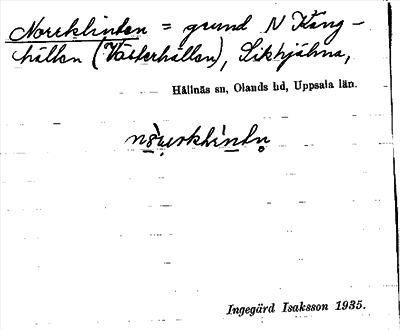 Norrklinten = grund N Kång-
hällan (Västerhällan), Sikhjälma,
Hållnäs sn, Olands hd, Uppsala län.
Ingegärd Isaksson 1935.